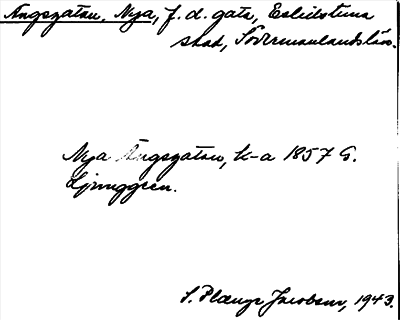 Ängsgatan, Nya, f. d. gata, Eskilstuna
stad, Södermanlands län.
Nya Ängsgatan, k-a 1857 G.
Ljunggren.
S. Plænge Jacobson, 1943.